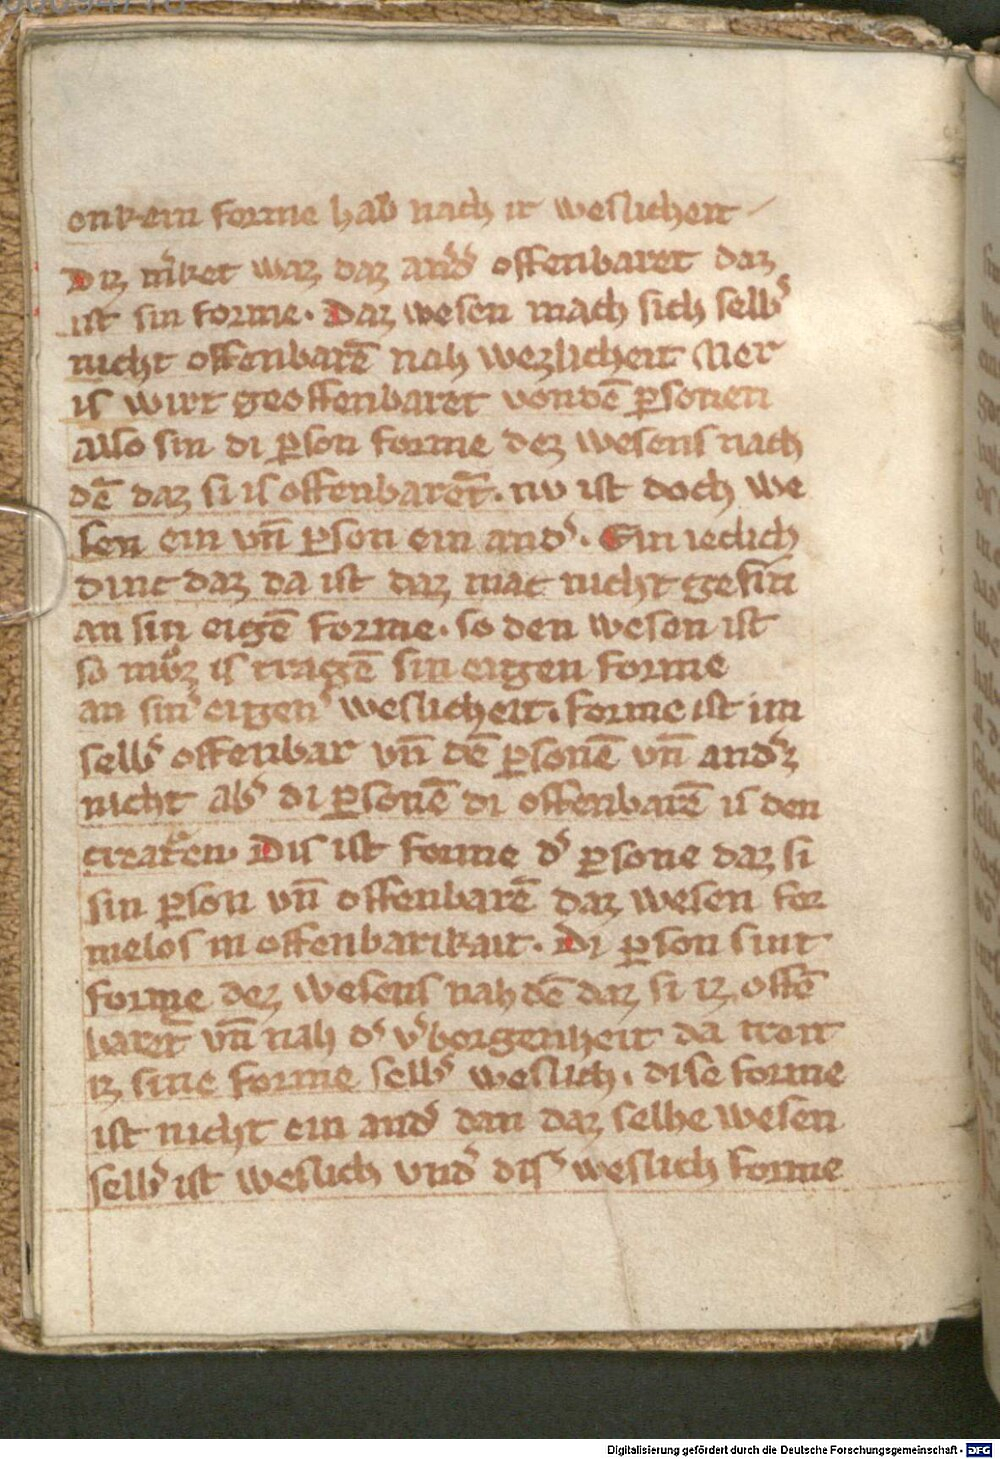 onkein forme hab nach ir weslicheit
Diz m̾ket waz daz and̾s offenbaret daz
ist sin forme. Daz wesen mach sich selb̾
nicht offenbarē nah wezlicheit Mer
is wirt geoffenbaret von dē p̱sonen
also sin di p̱son forme dez wesens nach
dē daz si is offenbarēt. nv ist doch we
sen ein vn̄ p̱son ein and̾. Ein ieclich
dinc daz da ist daz mac nicht gesin
an sin eigē forme. so den wesen ist
so mvͦz is tragē sin eigen forme
an sin̾ eigen̾ weslicheit. forme ist im
selb̾ offenbar vn̄ dē p̱sonē vn̄ and̾z
nicht ab̾ di p̱sonē di offenbarē is den
creatͦren. Dis ist forme d̾ p̱sone daz si
sin p̱son vn̄ offenbarē daz wesen for
melos in offenbarikait. Di p̱son sint
forme dez wesens nah dē daz si iz offē
barēt vn̄ nah d̾ v̾borgenheit da treit
iz sine forme selb̾ weslich. dise forme
ist nicht ein and̾ dan daz selbe wesen
selb̾ ist weslich vnd̾ dis̾ weslich forme
Digitalisierung gefördert durch die Deutsche Forschungsgemeinschaft - DFG